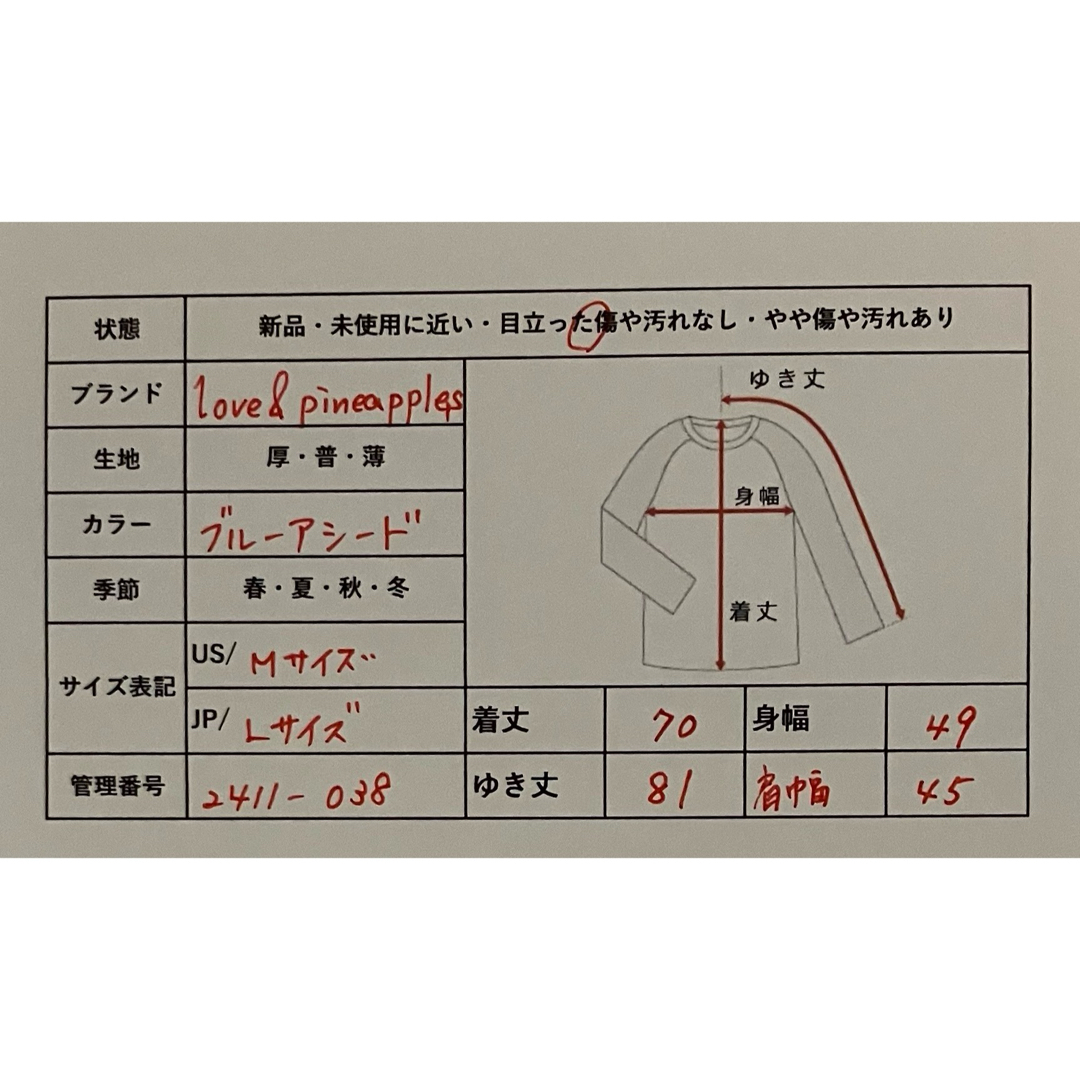 状態 新品・未使用に近い・目立った傷や汚れなし・やや傷や汚れあり
ブランド love& pineapples
生地 厚・普・薄
カラー ブルーアシード
季節 春・夏・秋・冬
サイズ表記 US/ Mサイズ
JP/ Lサイズ
管理番号 2411-038
ゆき丈
身幅
着丈
着丈 70 身幅 49
ゆき丈 81 肩巾幅 45